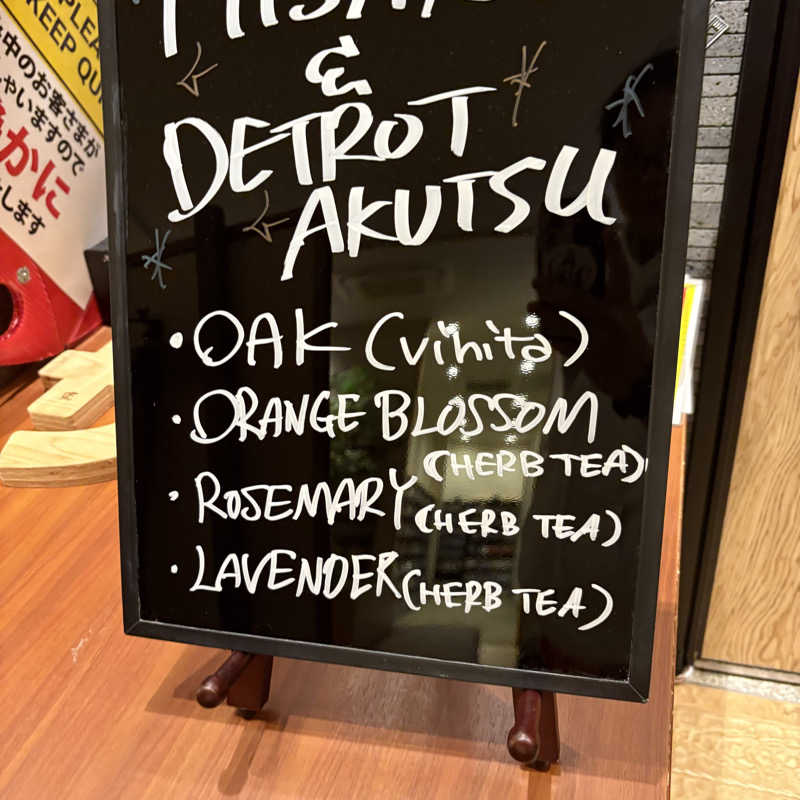 &
DETROT
AKUTSU
• OAK (vihita)
• ORANGE BLOSSOM
(HERB TEA)
• ROSEMARY (HERB TEA)
• LAVENDER (HERB TEA)
KEEP QU
中のお客さまが
ゃいますので
かに
します